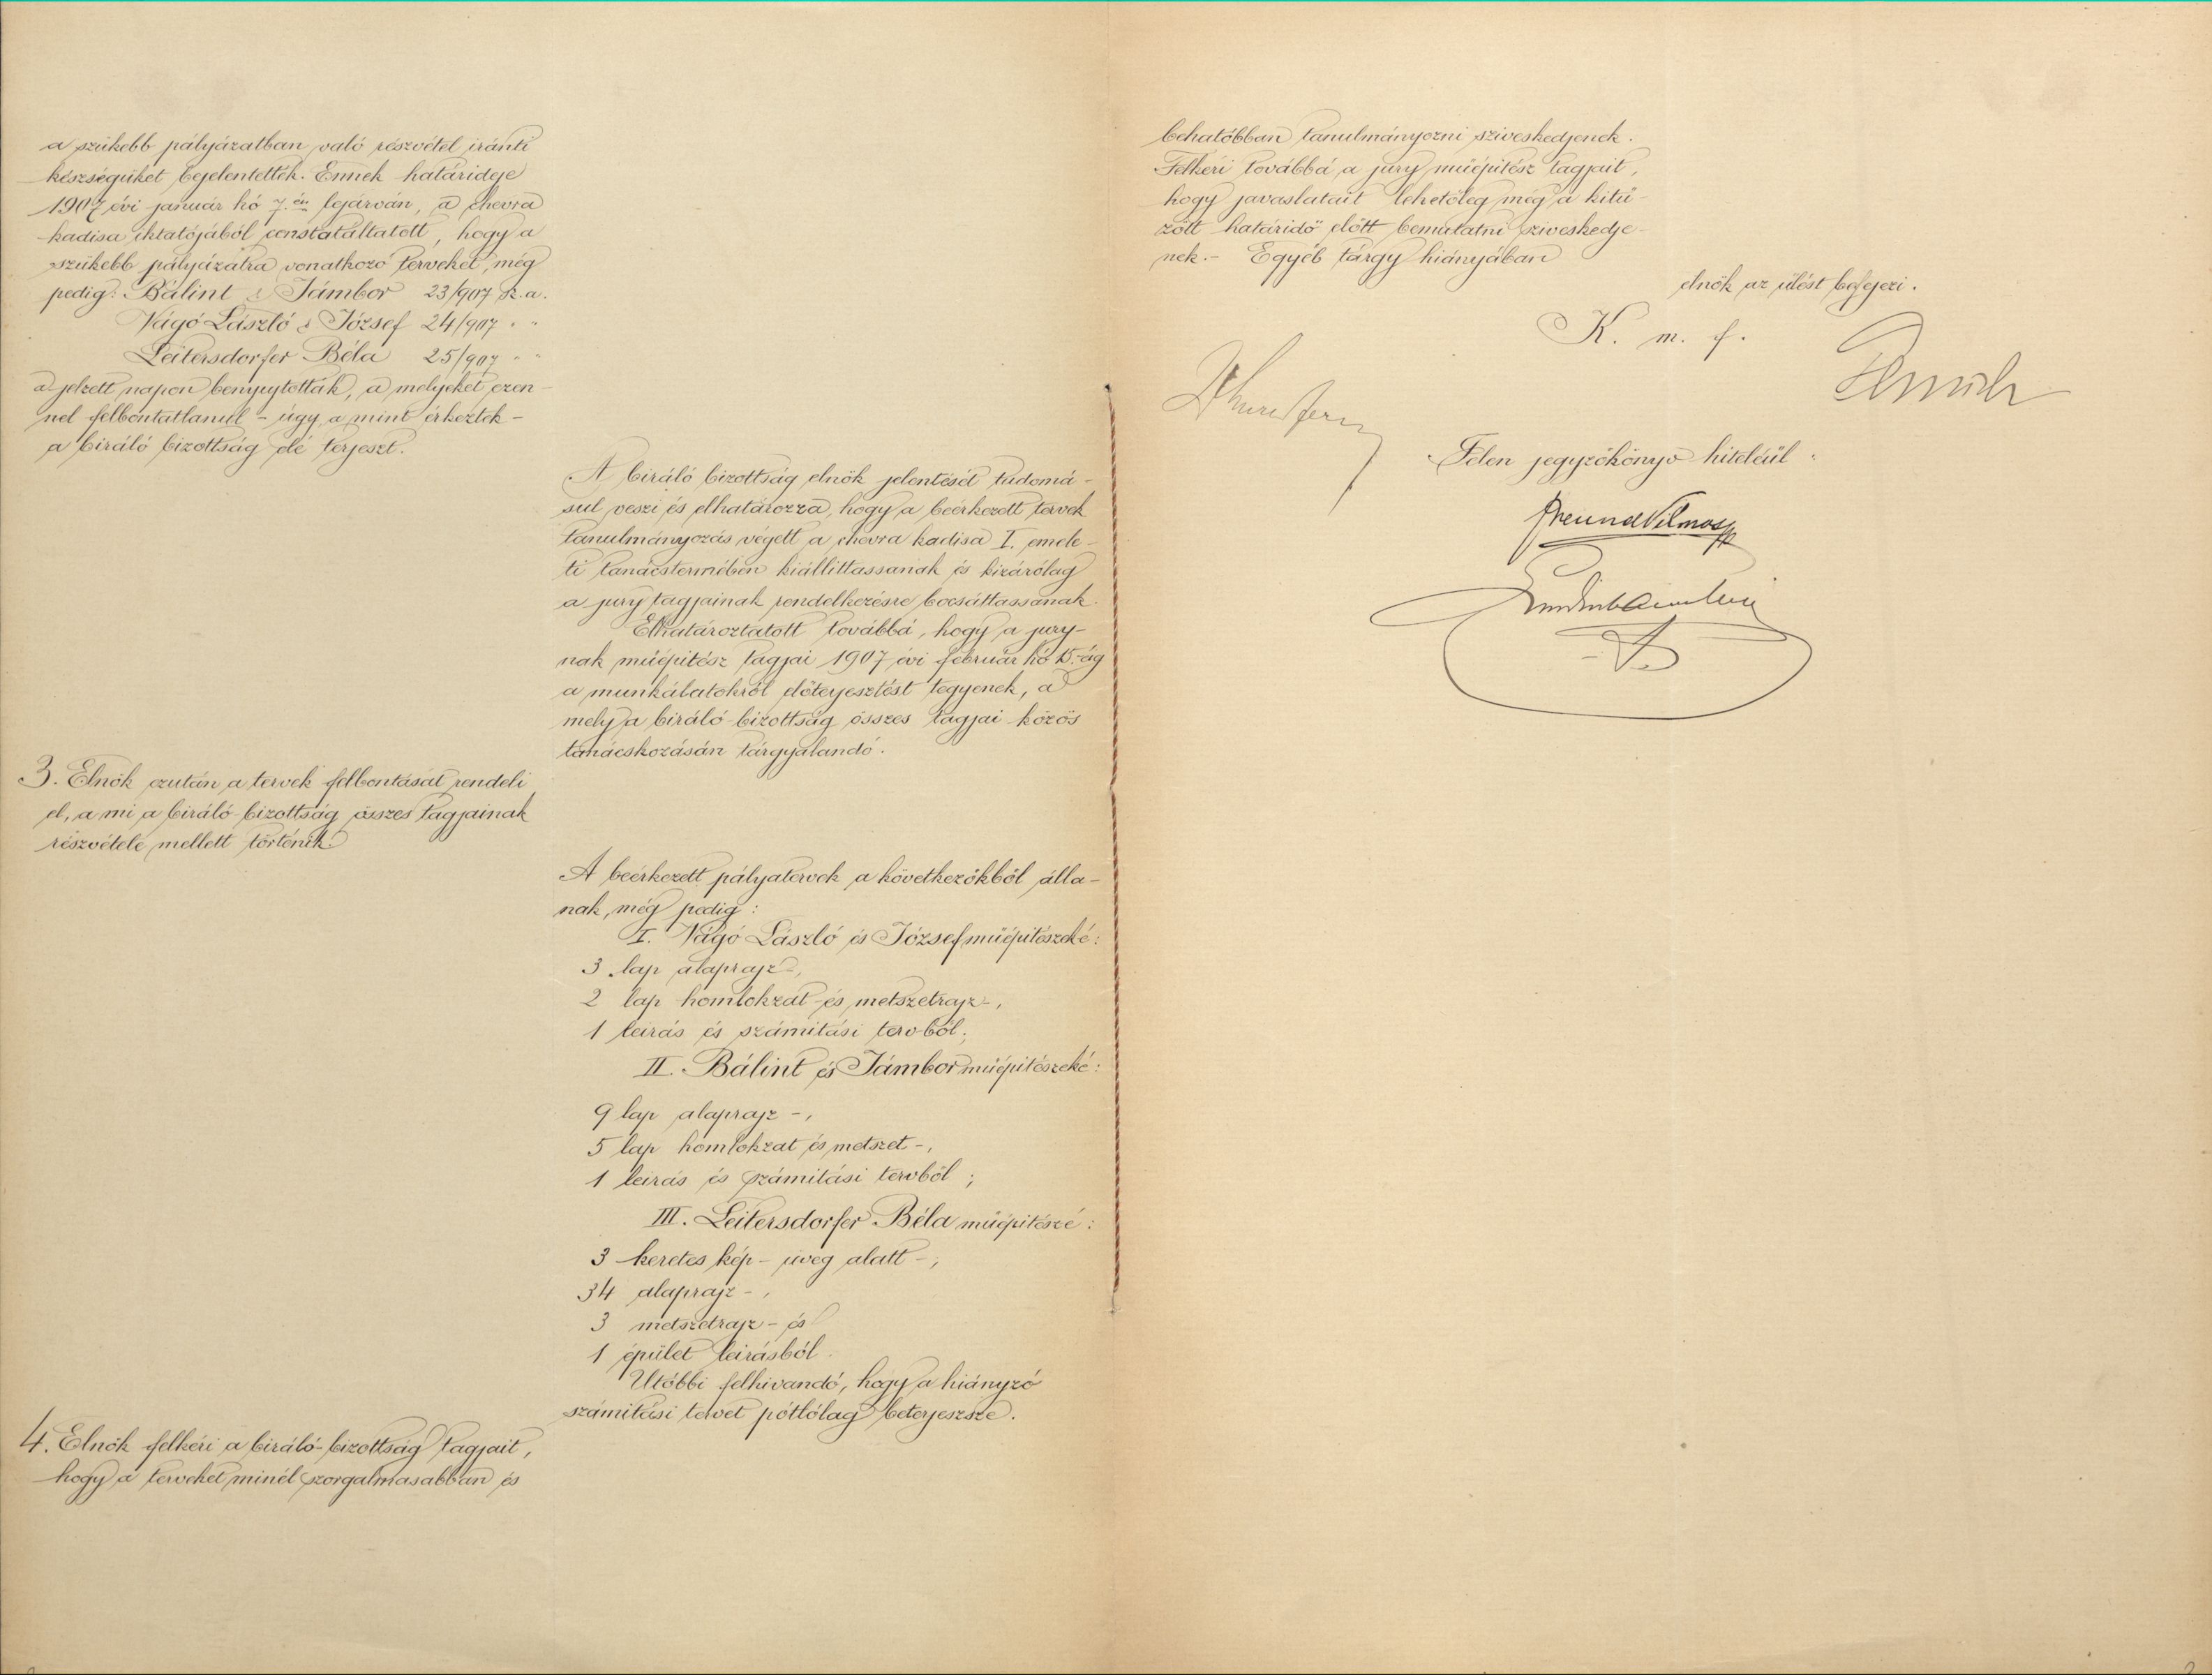 a szükebb pályázatban való részvétel iránti
készségüket bejelentették. Ennek határideje
1907 évi január hó 7.én lejárván, a chevra
kadisa iktatójából constatáltatott, hogy a
szükebb pályázatra vonatkozó terveket, még
pedig: Bálint & Jámbor 23/907 sz. a.
Vágó László & József 24/907 " "
Leitersdorfer Béla 25/907 " "
a jelzett napon benyujtották, a melyeket ezen-
nel felbontatlanul - úgy a mint érkeztek -
a biráló bizottság elé terjeszt.
A biráló bizottság elnök jelentését tudomá-
sul veszi és elhatározza, hogy a beérkezett tervek
tanulmányozás végett a chevra kadisa I. emele-
ti tanácstermében kiállittassanak és kizárólag
a jury tagjainak rendelkezésre bocsáttassanak.
Elhatároztatott továbbá, hogy a jury-
nak müépitész tagjai 1907 évi február hó 15.-ig
a munkálatokról előterjesztést tegyenek, a
mely a biráló-bizottság összes tagjai közös
tanácskozásán tárgyalandó.
3. Elnök ezután a tervek felbontását rendeli
el, a mi a biráló-bizottság összes tagjainak
részvétele mellett történik.
A beérkezett pályatervek a következőkből álla-
nak, még pedig:
I. Vágó László és József müépitészeké:
3 lap alaprajz-,
2 lap homlokzat-és metszetrajz-,
1 leirás és számitási terv-ből;
II. Bálint és Jámbor müépitészeké:
9 lap alaprajz -,
5 lap homlokzat és metszet -,
1 leirás és számitási tervből ;
III. Leitersdorfer Béla müépitészé:
3 keretes kép - üveg alatt -,
34 alaprajz - ,
3 metszetrajz - és
1 épület leirásból.
Utóbbi felhivandó, hogy a hiányzó
számitási tervet pótlólag beterjeszsze.
4. Elnök felkéri a biráló-bizottság tagjait,
hogy a terveket minél szorgalmasabban és
behatóbban tanulmányozni sziveskedjenek.
Felkéri továbbá a jury müépitész tagjait,
hogy javaslatait lehetőleg még a kitü-
zött határidő előtt bemutatni sziveskedje-
nek.- Egyéb tárgy hiányában
elnök az ülést befejezi.
K. m. f.
Jelen jegyzőkönyv hiteléül:
Freund Vilmos